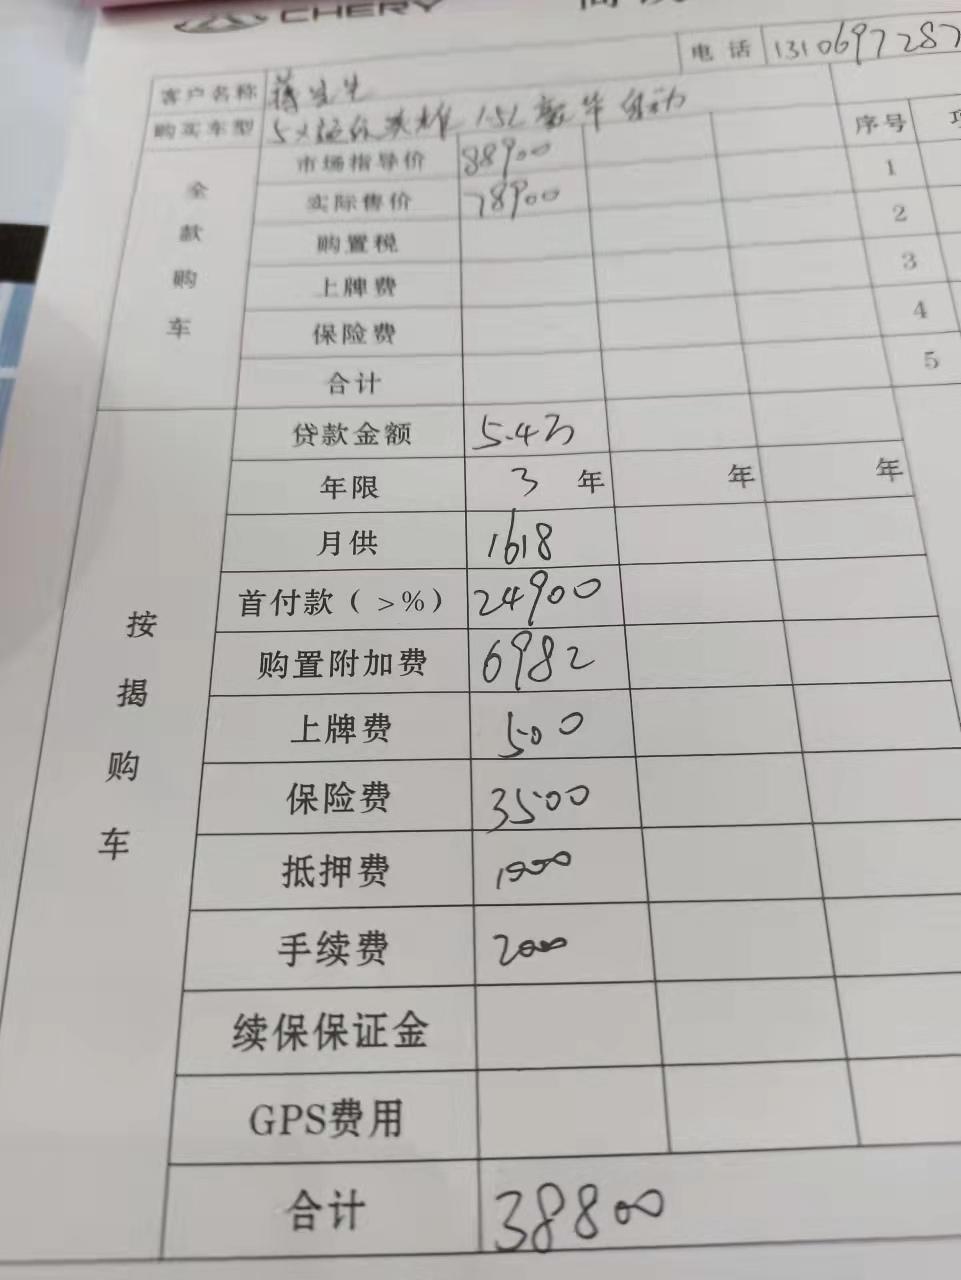 CHERY
电话 1310697287
客户名称 蒋先生
购买车型 1.5L 豪华
序号
全款购车
市场指导价 88900
1
实际售价 78900
2
购置税
3
上牌费
4
保险费
5
合计
按揭购车
贷款金额 5.4万
年限 3 年 年 年
月供 1618
首付款（＞%） 24900
购置附加费 6982
上牌费 500
保险费 3500
抵押费 1000
手续费 2000
续保保证金
GPS费用
合计 38800